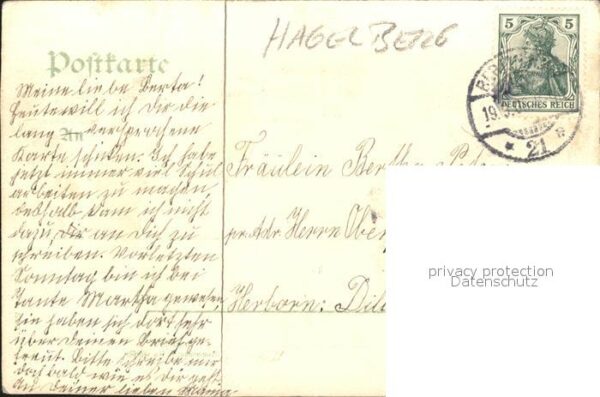 HAGELBERG
5 5
DEUTSCHES REICH
19.
* 21 *
Postkarte
An
Meine liebe Berta!
Heute will ich Dir die
lang versprochene
Karte schicken. Ich habe
jetzt immer viel Schul
arbeiten zu machen,
deshalb kam ich nicht
dazu, Dir an Dich zu
schreiben. Vorletzten
Sonntag bin ich bei
Tante Martha gewesen
Sie haben sich dort sehr
über Deinen Brief ge-
freut. Bitte schreibe mir
doch bald wie es dir geht
An Deiner lieben Maria
Fräulein Bertha
pr. Adr. Herrn Ober
Herborn: Dill
privacy protection
Datenschutz